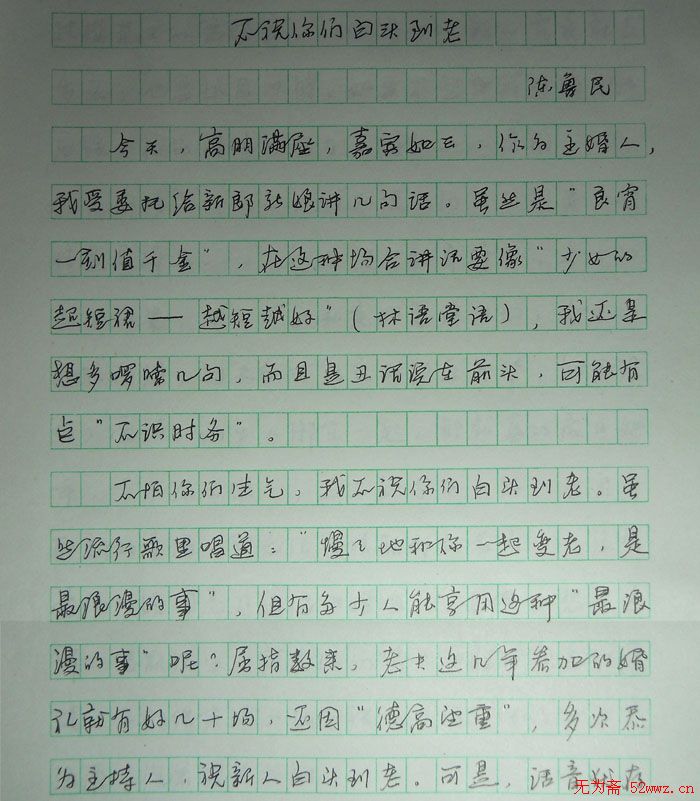 不祝你们白头到老
陈鲁民
今天，高朋满座，嘉宾如云，作为主婚人，
我受委托给新郎新娘讲几句话。虽然是"良宵
一刻值千金"，在这种场合讲话要像"少女的
超短裙——越短越好"(林语堂语)，我还是
想多啰嗦几句，而且是丑话说在前头，可能有
点"不识时务"。
不怕你们生气，我不祝你们白头到老。虽
然流行歌里唱道："慢慢地和你一起变老，是
最浪漫的事"，但有多少人能享用这种"最浪
漫的事"呢？屈指数来，老夫这几年参加的婚
礼就有好几十场，还因"德高望重"，多次忝
为主持人，祝新人白头到老。可是，话音犹存
无为斋-52wwz.cn